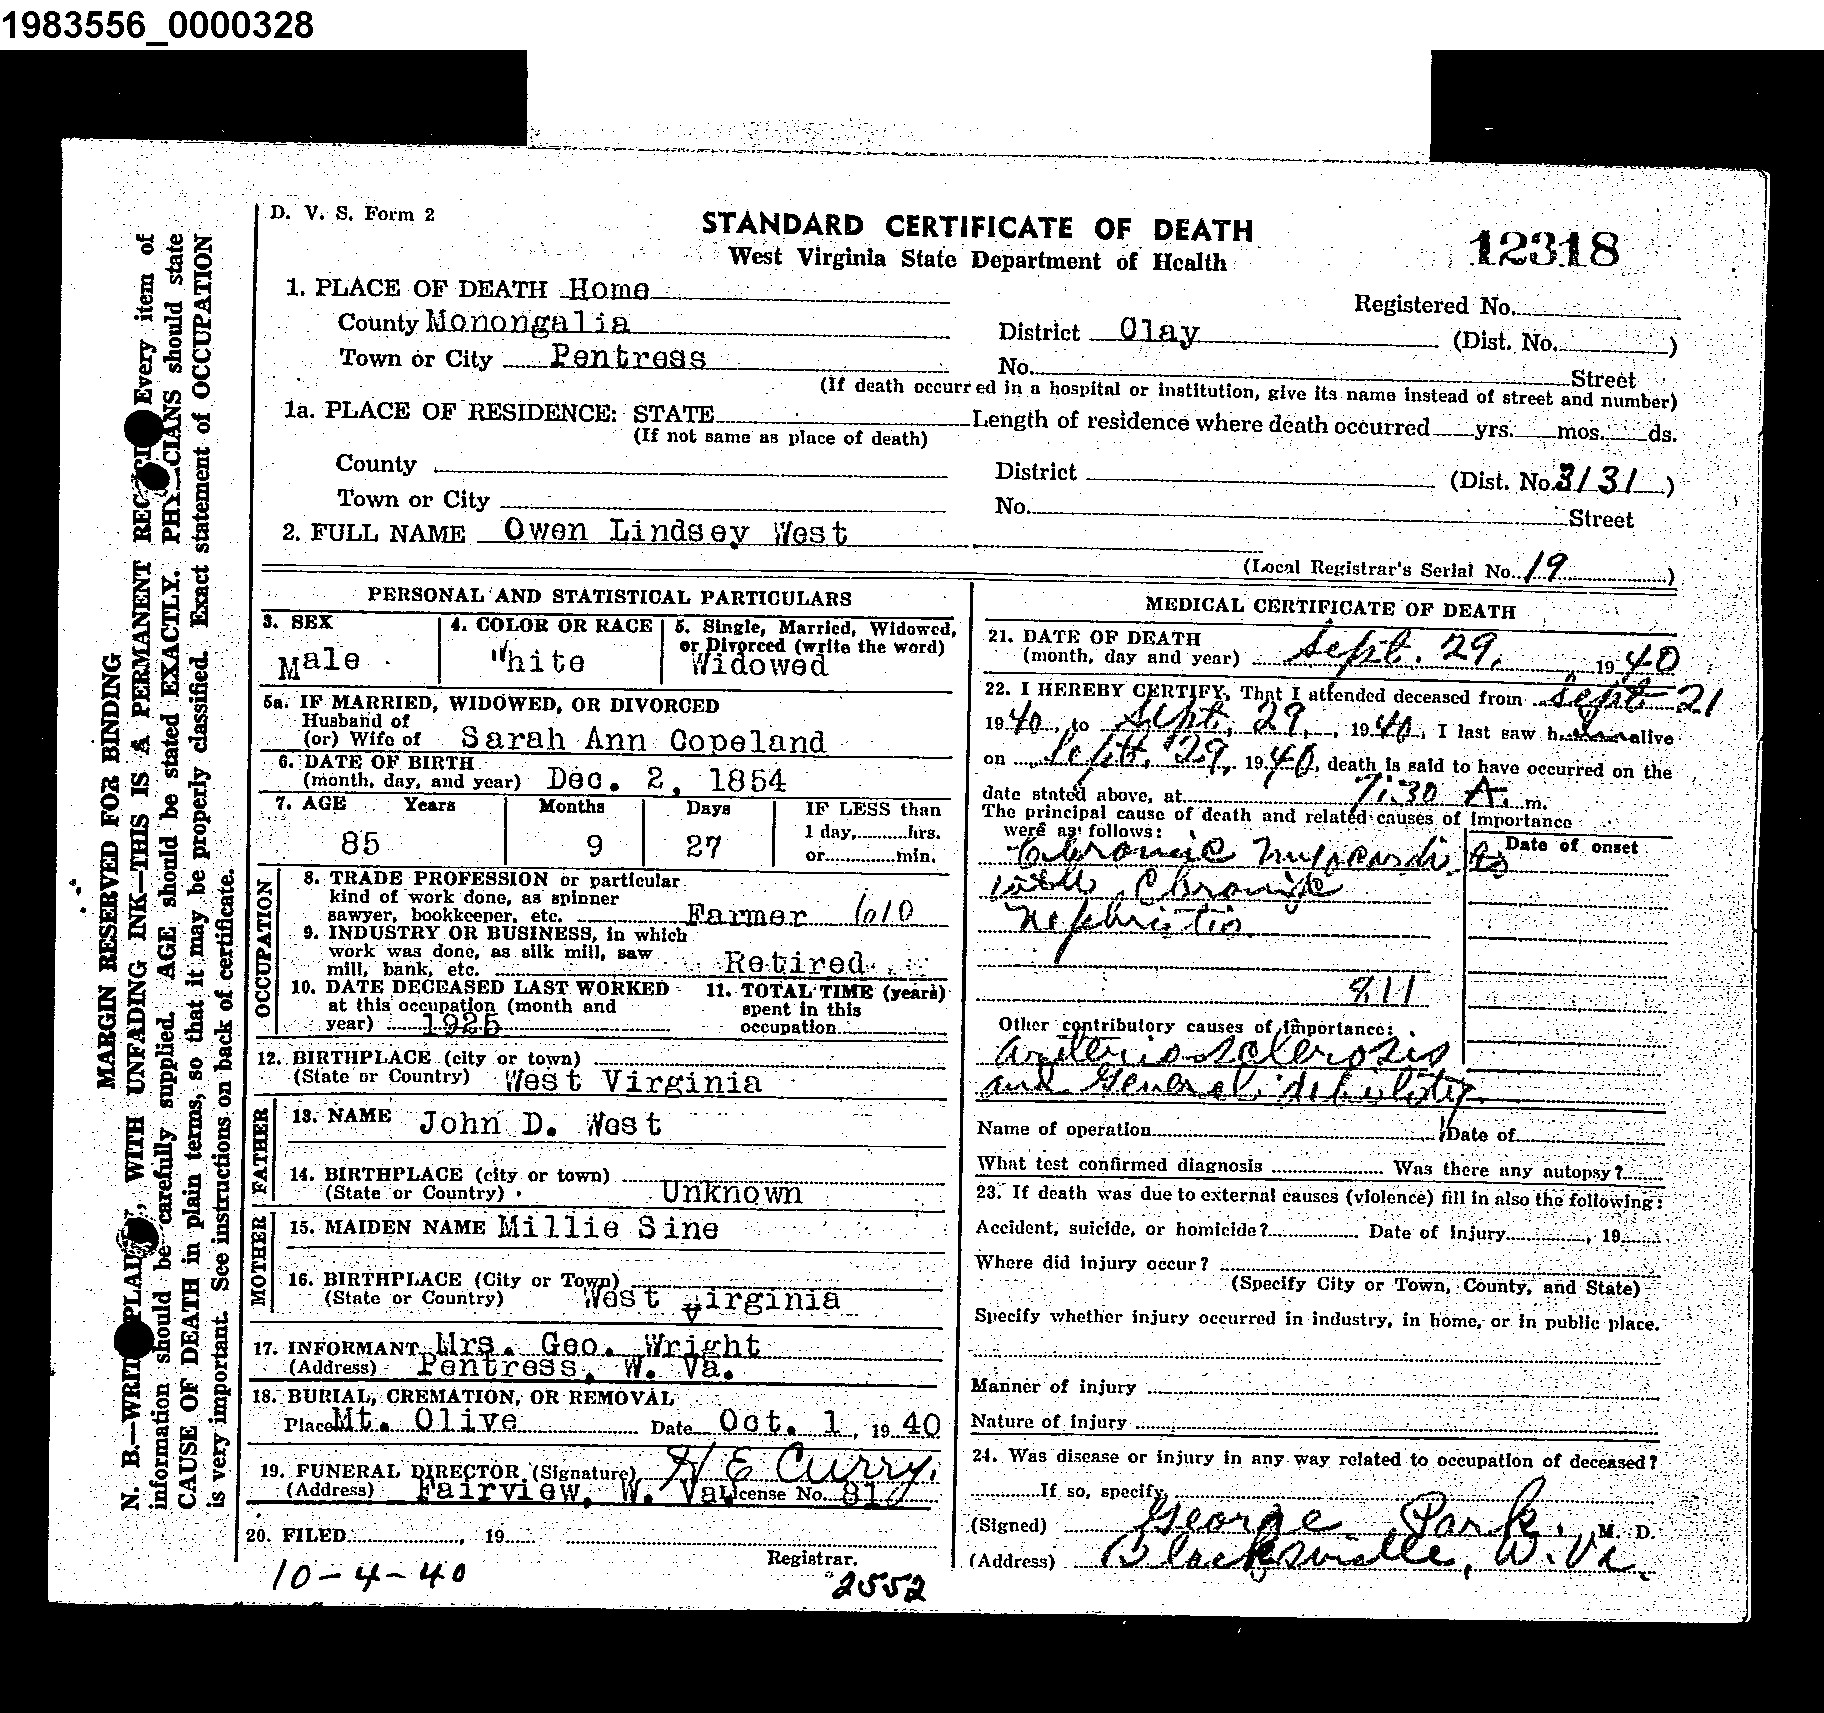 1983556_0000328
D. V. S. Form 2
STANDARD CERTIFICATE OF DEATH
West Virginia State Department of Health
12318
1. PLACE OF DEATH Home
Registered No.
County Monongalia
District Clay (Dist. No. )
Town or City Pentress
No. Street
(If death occurred in a hospital or institution, give its name instead of street and number)
1a. PLACE OF RESIDENCE: STATE
(If not same as place of death)
Length of residence where death occurred yrs. mos. ds.
County
District (Dist. No. 3131 )
Town or City
No. Street
2. FULL NAME Owen Lindsey West
(Local Registrar's Serial No. 19 )
PERSONAL AND STATISTICAL PARTICULARS
3. SEX
Male
4. COLOR OR RACE
White
5. Single, Married, Widowed,
or Divorced (write the word)
Widowed
5a. IF MARRIED, WIDOWED, OR DIVORCED
Husband of
(or) Wife of Sarah Ann Copeland
6. DATE OF BIRTH
(month, day, and year) Dec. 2, 1854
7. AGE Years Months Days IF LESS than
1 day, hrs.
or min.
85 9 27
OCCUPATION
8. TRADE PROFESSION or particular
kind of work done, as spinner
sawyer, bookkeeper, etc. Farmer 610
9. INDUSTRY OR BUSINESS, in which
work was done, as silk mill, saw
mill, bank, etc. Retired
10. DATE DECEASED LAST WORKED
at this occupation (month and
year) 1925
11. TOTAL TIME (years)
spent in this
occupation
12. BIRTHPLACE (city or town)
(State or Country) West Virginia
FATHER
13. NAME John D. West
14. BIRTHPLACE (city or town)
(State or Country) Unknown
MOTHER
15. MAIDEN NAME Millie Sine
16. BIRTHPLACE (City or Town)
(State or Country) West Virginia
17. INFORMANT Mrs. Geo. Wright
(Address) Pentress, W. Va.
18. BURIAL, CREMATION, OR REMOVAL
Place Mt. Olive Date Oct. 1, 19 40
19. FUNERAL DIRECTOR (Signature) H E Curry.
(Address) Fairview, W. Va. License No. 810
20. FILED , 19
Registrar.
10-4-40
2552
MEDICAL CERTIFICATE OF DEATH
21. DATE OF DEATH
(month, day and year) Sept. 29, 19 40
22. I HEREBY CERTIFY, That I attended deceased from Sept 21
1940, to Sept. 29, 1940, I last saw h alive
on Sept. 29, 1940, death is said to have occurred on the
date stated above, at 7:30 A. m.
The principal cause of death and related causes of importance
were as follows:
Date of onset
Chronic myocarditis
with Chronic
Nephritis
Other contributory causes of importance:
arteriosclerosis
and General debility.
Name of operation Date of
What test confirmed diagnosis Was there any autopsy?
23. If death was due to external causes (violence) fill in also the following:
Accident, suicide, or homicide? Date of injury , 19
Where did injury occur?
(Specify City or Town, County, and State)
Specify whether injury occurred in industry, in home, or in public place.
Manner of injury
Nature of injury
24. Was disease or injury in any way related to occupation of deceased?
If so, specify
(Signed) George Park, M. D.
(Address) Blacksville, W. Va.
MARGIN RESERVED FOR BINDING
N. B.—WRITE PLAINLY, WITH UNFADING INK—THIS IS A PERMANENT Every item of
information should be carefully supplied. AGE should be stated EXACTLY. PHYSICIANS should state
CAUSE OF DEATH in plain terms, so that it may be properly classified. Exact statement of OCCUPATION
is very important. See instructions on back of certificate.